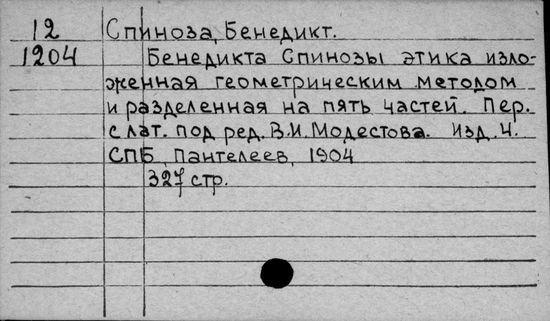 12 Спиноза, Бенедикт.
1204 Бенедикта Спинозы этика изло-
женная геометрическим методом
и разделенная на пять частей. Пер.
с лат. под ред. В.И. Модестова. Изд. 4.
СПБ, Пантелеев, 1904
327 стр.